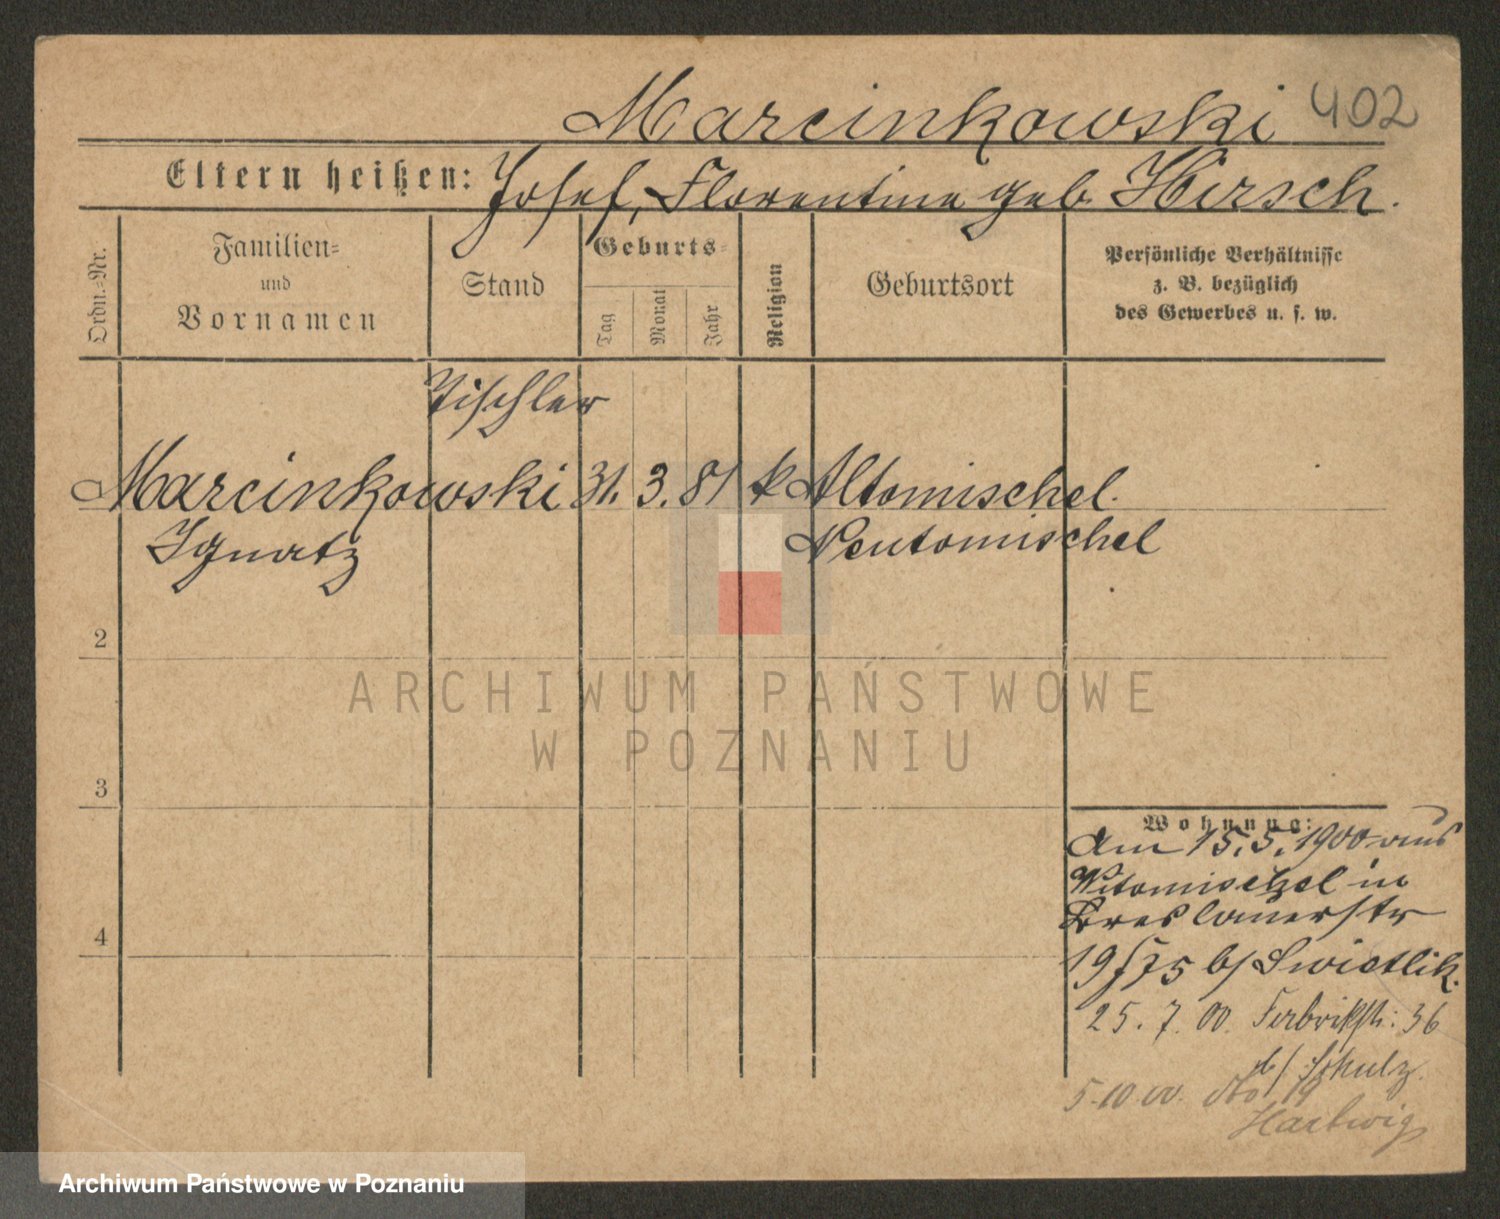 Marcinkowski 402
Eltern heißen: Josef, Florentine geb. Hirsch.
Ordn.-Nr.
Familien-
und
Vornamen
Stand
Geburts-
Tag
Monat
Jahr
Religion
Geburtsort
Persönliche Verhältnisse
z. B. bezüglich
des Gewerbes u. s. w.
Tischler
Marcinkowski 31. 3. 81 k Altomischel.
Ignatz Neutomischel
2
3
4
ARCHIWUM PAŃSTWOWE
W POZNANIU
Wohnung:
Am 15.5.1900 aus
Witomischel in
Breslauerstr
19/75 b/ Swietlik.
25. 7. 00. Fabrikstr: 36
b/ Schulz.
5.10.00. dto 19
Hartwig
Archiwum Państwowe w Poznaniu